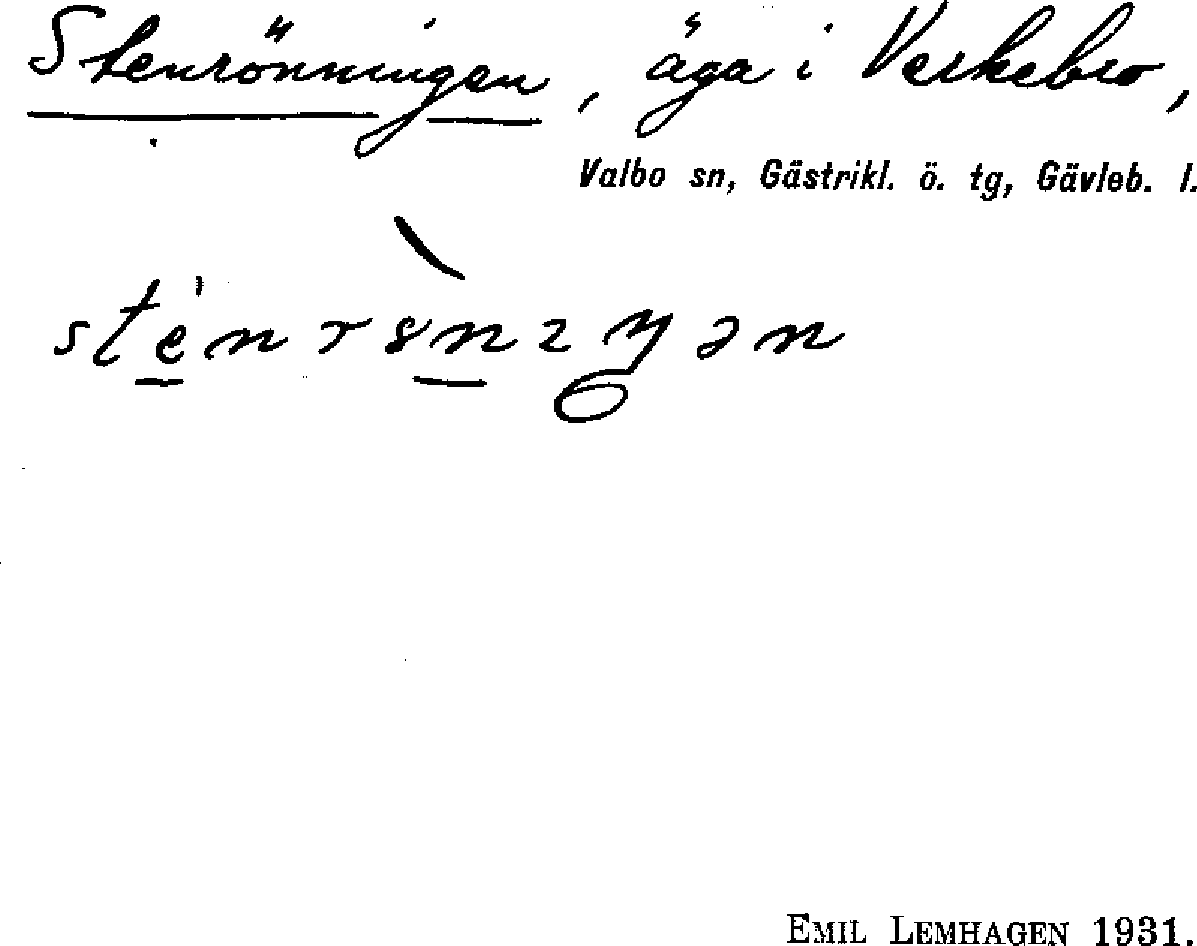 Stenrönningen, äga i Verkebro,
Valbo sn, Gästrikl. ö. tg, Gävleb. l.
EMIL LEMHAGEN 1931.